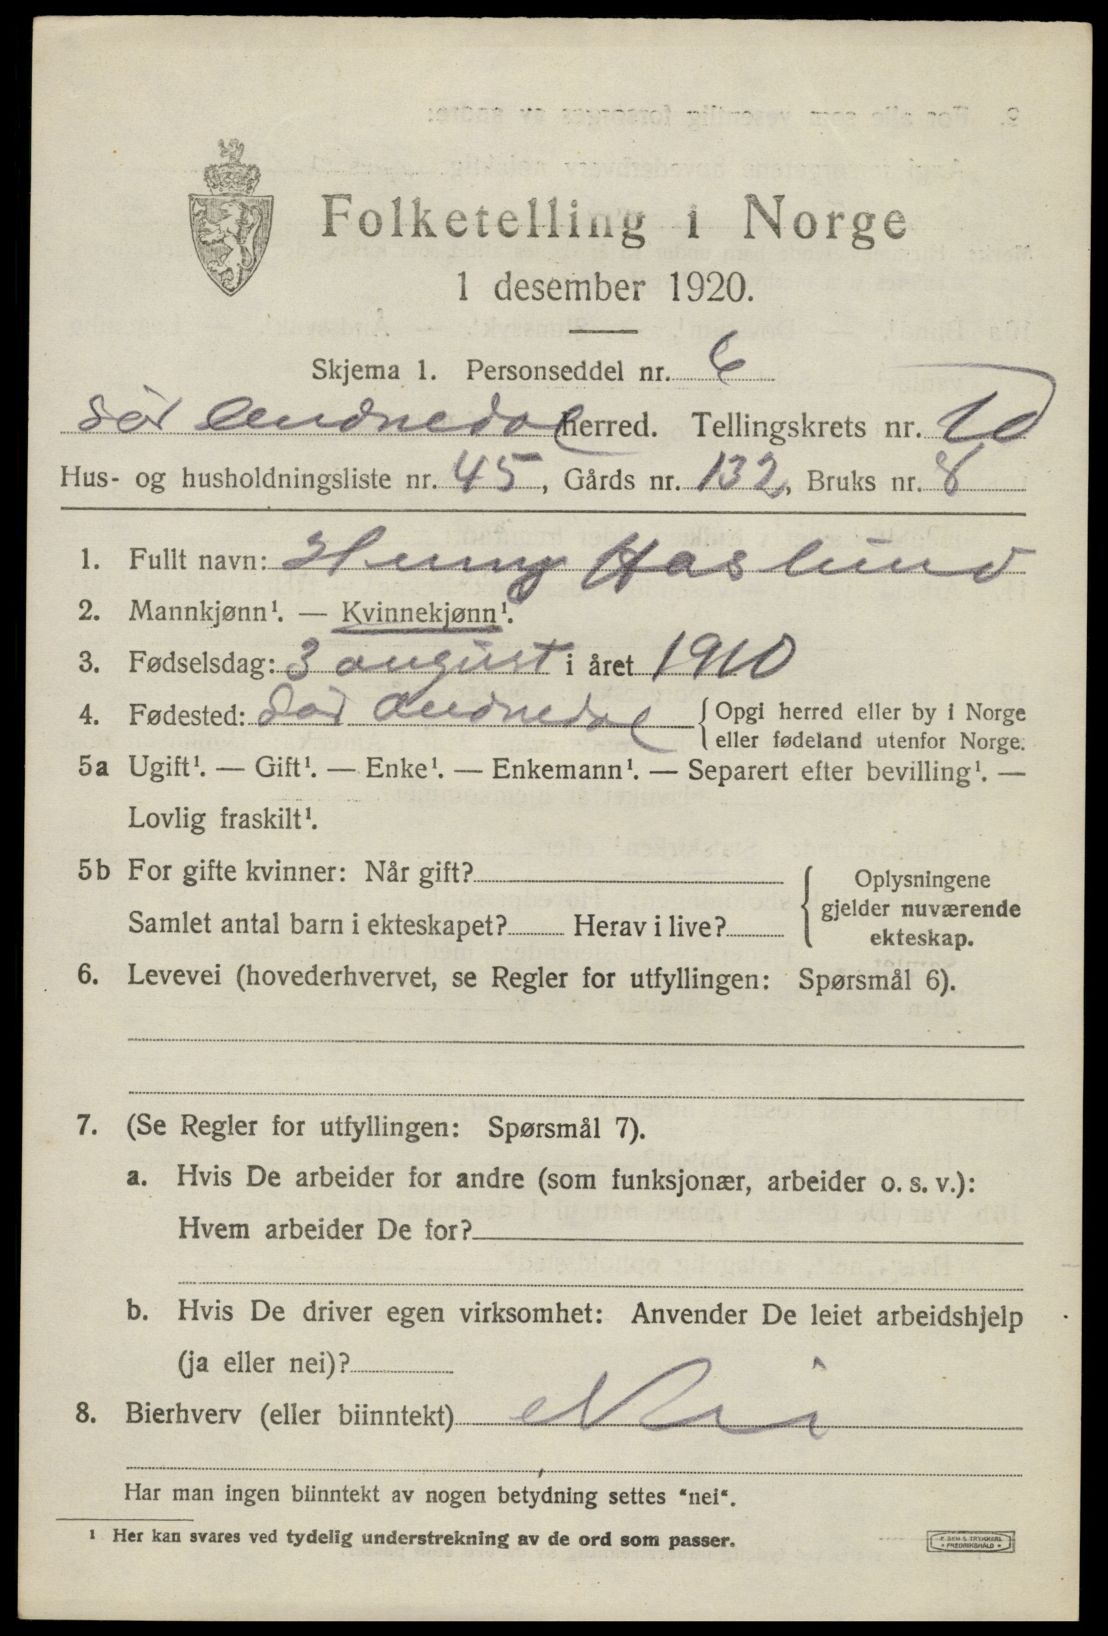 Folketelling i Norge
1 desember 1920.
Skjema 1. Personseddel nr. 6
Sör Audnedal herred. Tellingskrets nr. 10
Hus- og husholdningsliste nr. 45, Gårds nr. 132, Bruks nr. 8
1. Fullt navn: Henny Haslund
2. Mannkjønn¹. — Kvinnekjønn¹.
3. Fødselsdag: 3 august i året 1910
4. Fødested: Sör Audnedal {Opgi herred eller by i Norge
eller fødeland utenfor Norge.
5a Ugift¹. — Gift¹. — Enke¹. — Enkemann¹. — Separert efter bevilling¹. —
Lovlig fraskilt¹.
5b For gifte kvinner: Når gift?
Samlet antal barn i ekteskapet? Herav i live?
{Oplysningene
gjelder nuværende
ekteskap.
6. Levevei (hovederhvervet, se Regler for utfyllingen: Spørsmål 6).
7. (Se Regler for utfyllingen: Spørsmål 7).
a. Hvis De arbeider for andre (som funksjonær, arbeider o. s. v.):
Hvem arbeider De for?
b. Hvis De driver egen virksomhet: Anvender De leiet arbeidshjelp
(ja eller nei)?
8. Bierhverv (eller biinntekt) Nei
Har man ingen biinntekt av nogen betydning settes "nei".
¹ Her kan svares ved tydelig understrekning av de ord som passer.